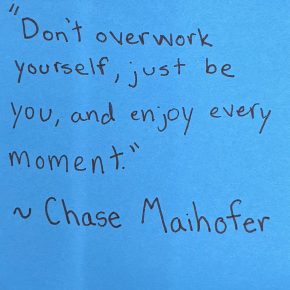 "Don't overwork
yourself, just be
you, and enjoy every
moment."
~ Chase Maihofer